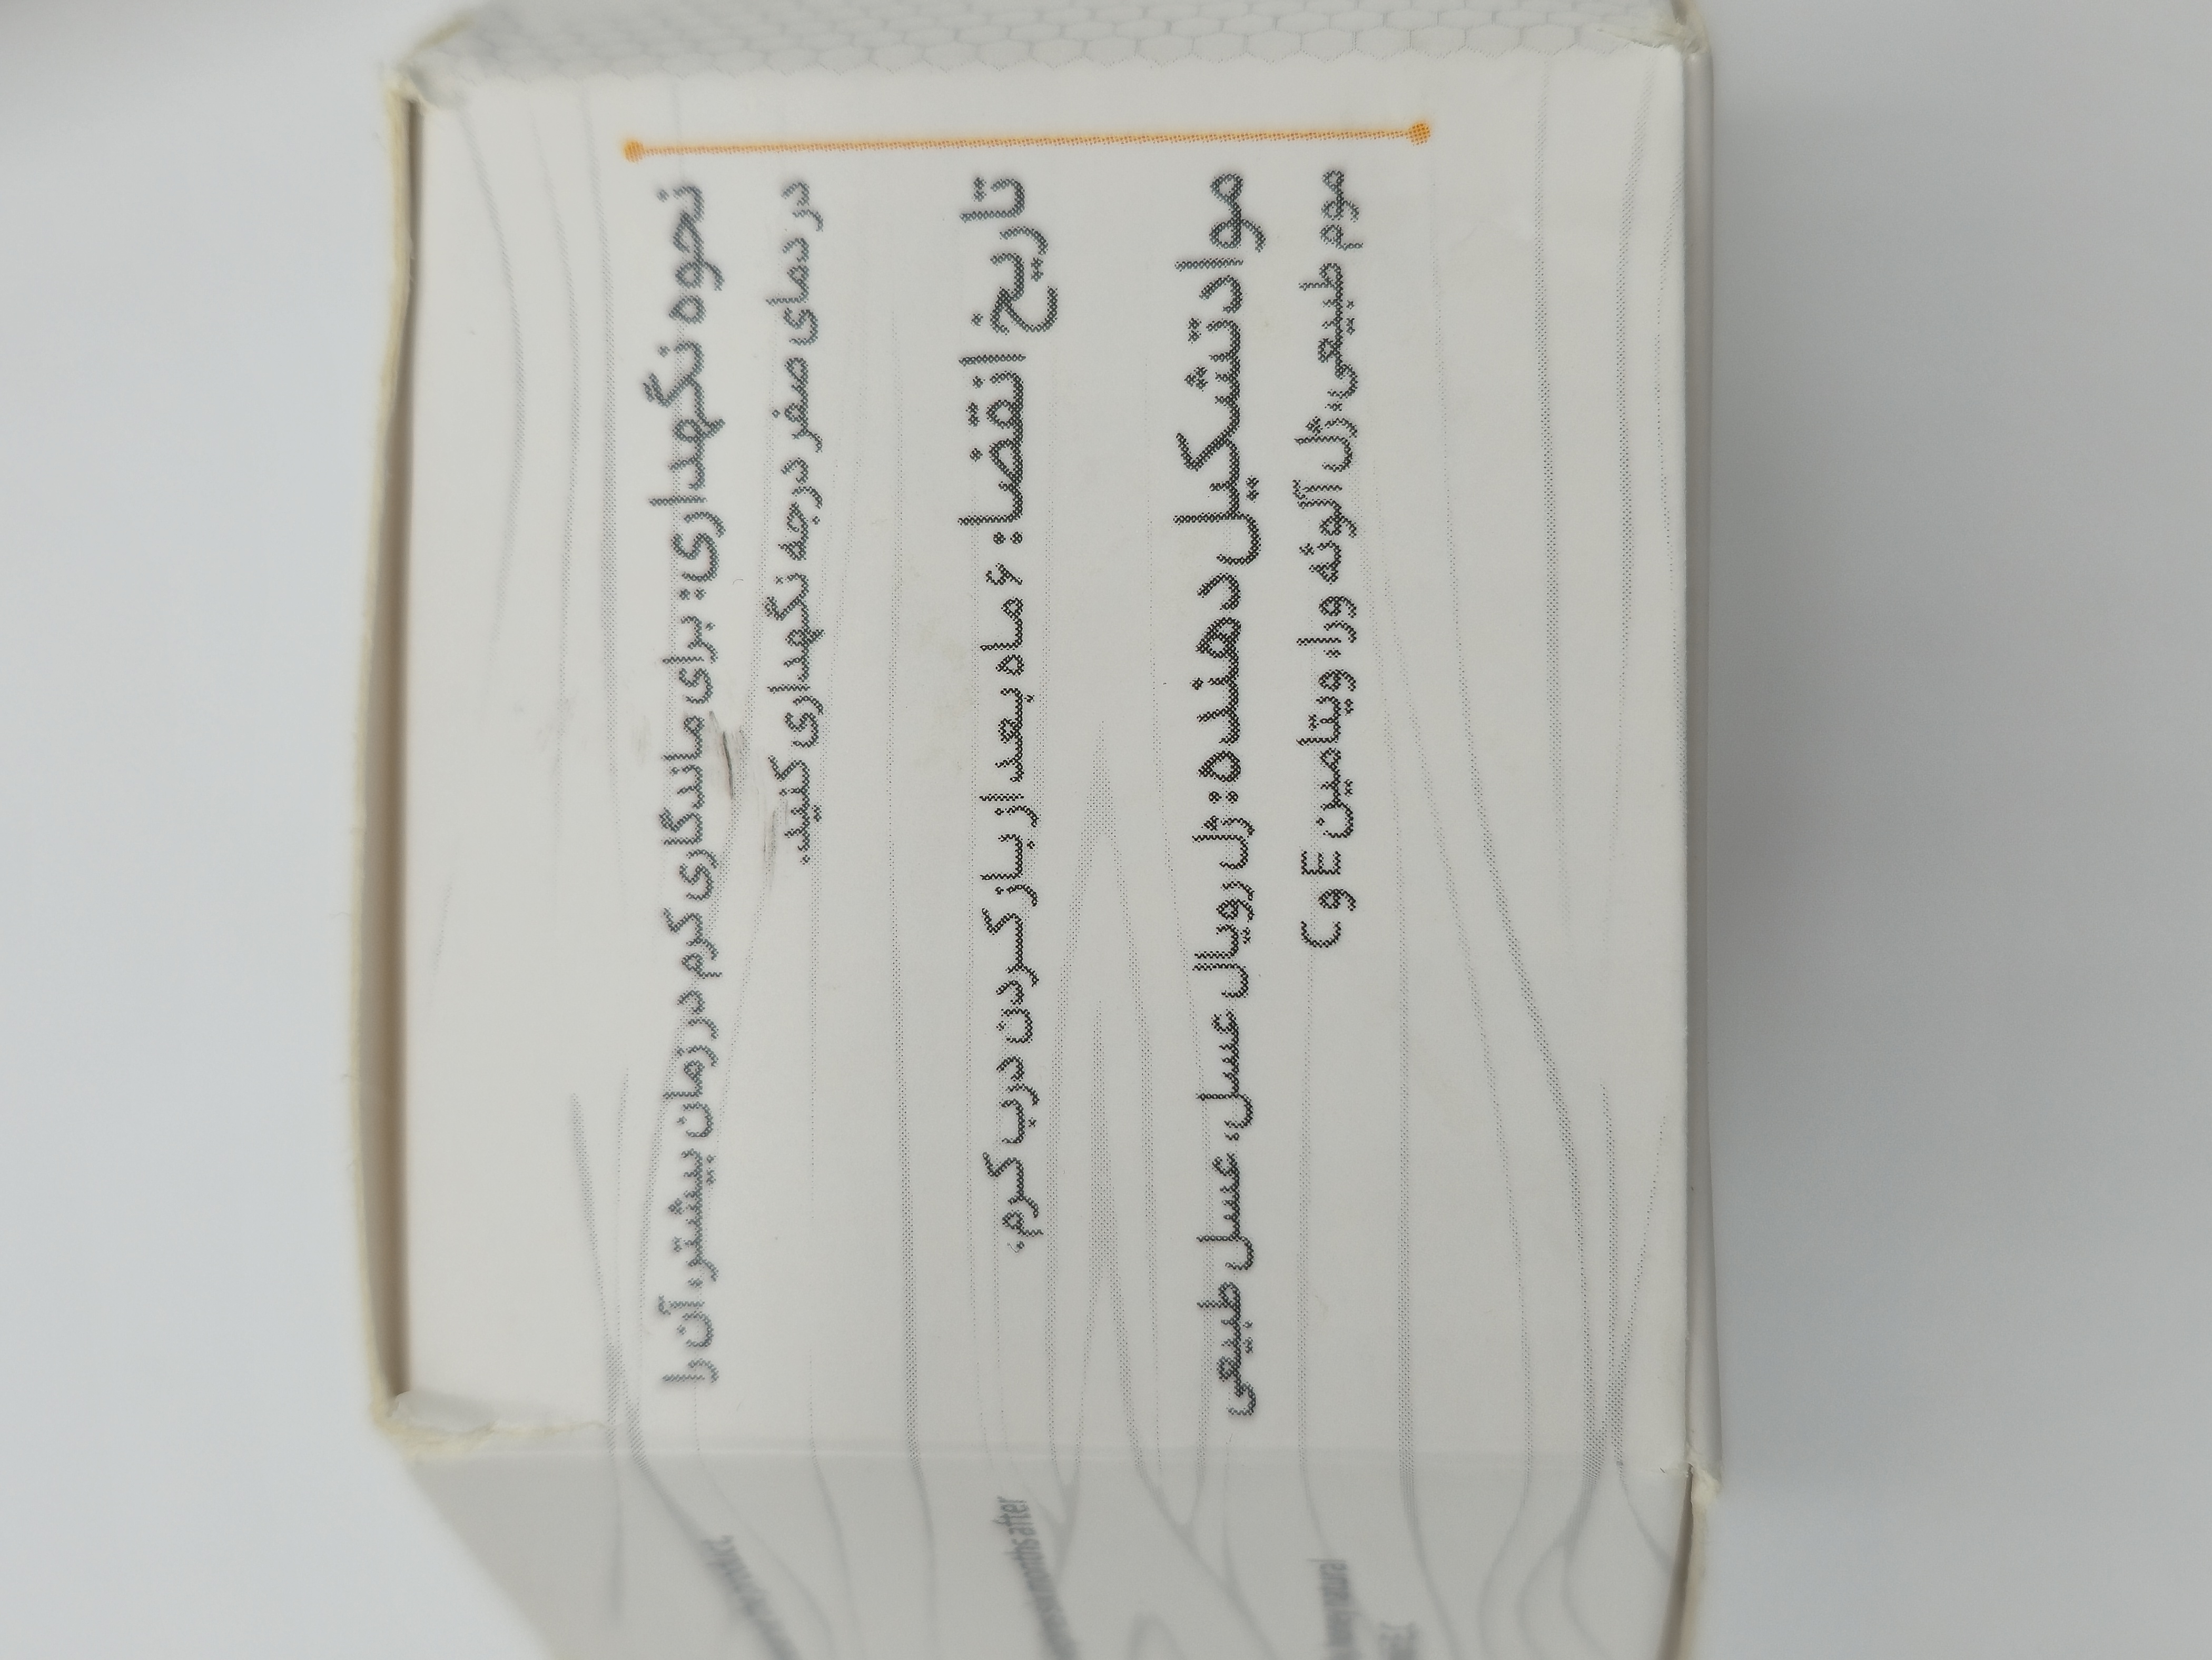 نحوه نگهداری: برای ماندگاری کرم در زمان بیشتر، آن را
در دمای صفر درجه نگهداری کنید.
تاریخ انقضا: ۶ ماه بعد از باز کردن درب کرم.
مواد تشکیل دهنده: ژل رویال عسل، عسل طبیعی
موم طبیعی، ژل آلوئه ورا، ویتامین E و C
months after
natural